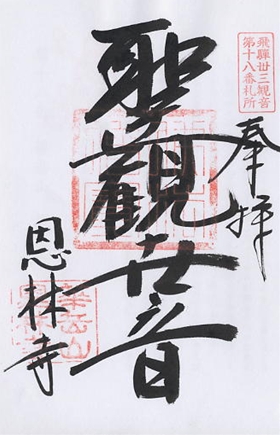 飛騨丗三観音
第十八番札所
奉拝
聖観世音
恩林寺